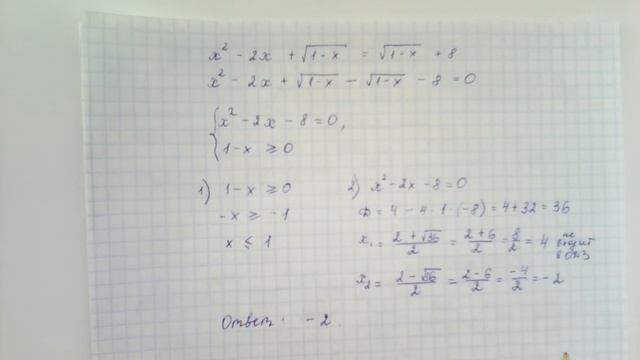 x² - 2x + √(1-x) = √(1-x) + 8
x² - 2x + √(1-x) - √(1-x) - 8 = 0
{x² - 2x - 8 = 0,
1-x ≥ 0
1) 1-x ≥ 0
-x ≥ -1
x ≤ 1
2) x² - 2x - 8 = 0
D = 4 - 4·1·(-8) = 4+32 = 36
x₁ = (2+√36)/2 = (2+6)/2 = 8/2 = 4 не входит в ОДЗ
x₂ = (2-√36)/2 = (2-6)/2 = -4/2 = -2
Ответ: -2.